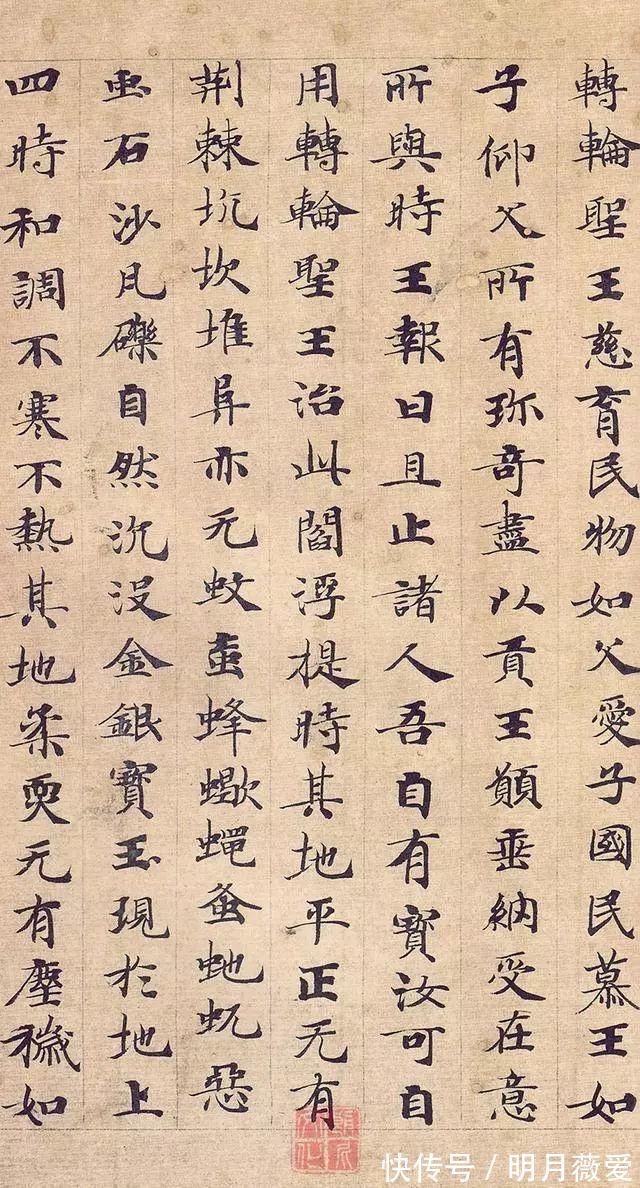 轉輪聖王慈育民物如父愛子國民慕王如
子仰父所有珎奇盡以貢王願垂納受在意
所與時王報曰且止諸人吾自有寶汝可自
用轉輪聖王治此閻浮提時其地平正无有
荆棘坑坎堆阜亦无蚊䖟蜂蠍蠅蚤虵虺惡
虫石沙瓦礫自然沉没金銀寶玉現於地上
四時和調不寒不熱其地柔耎无有塵穢如
快传号 / 明月薇爱